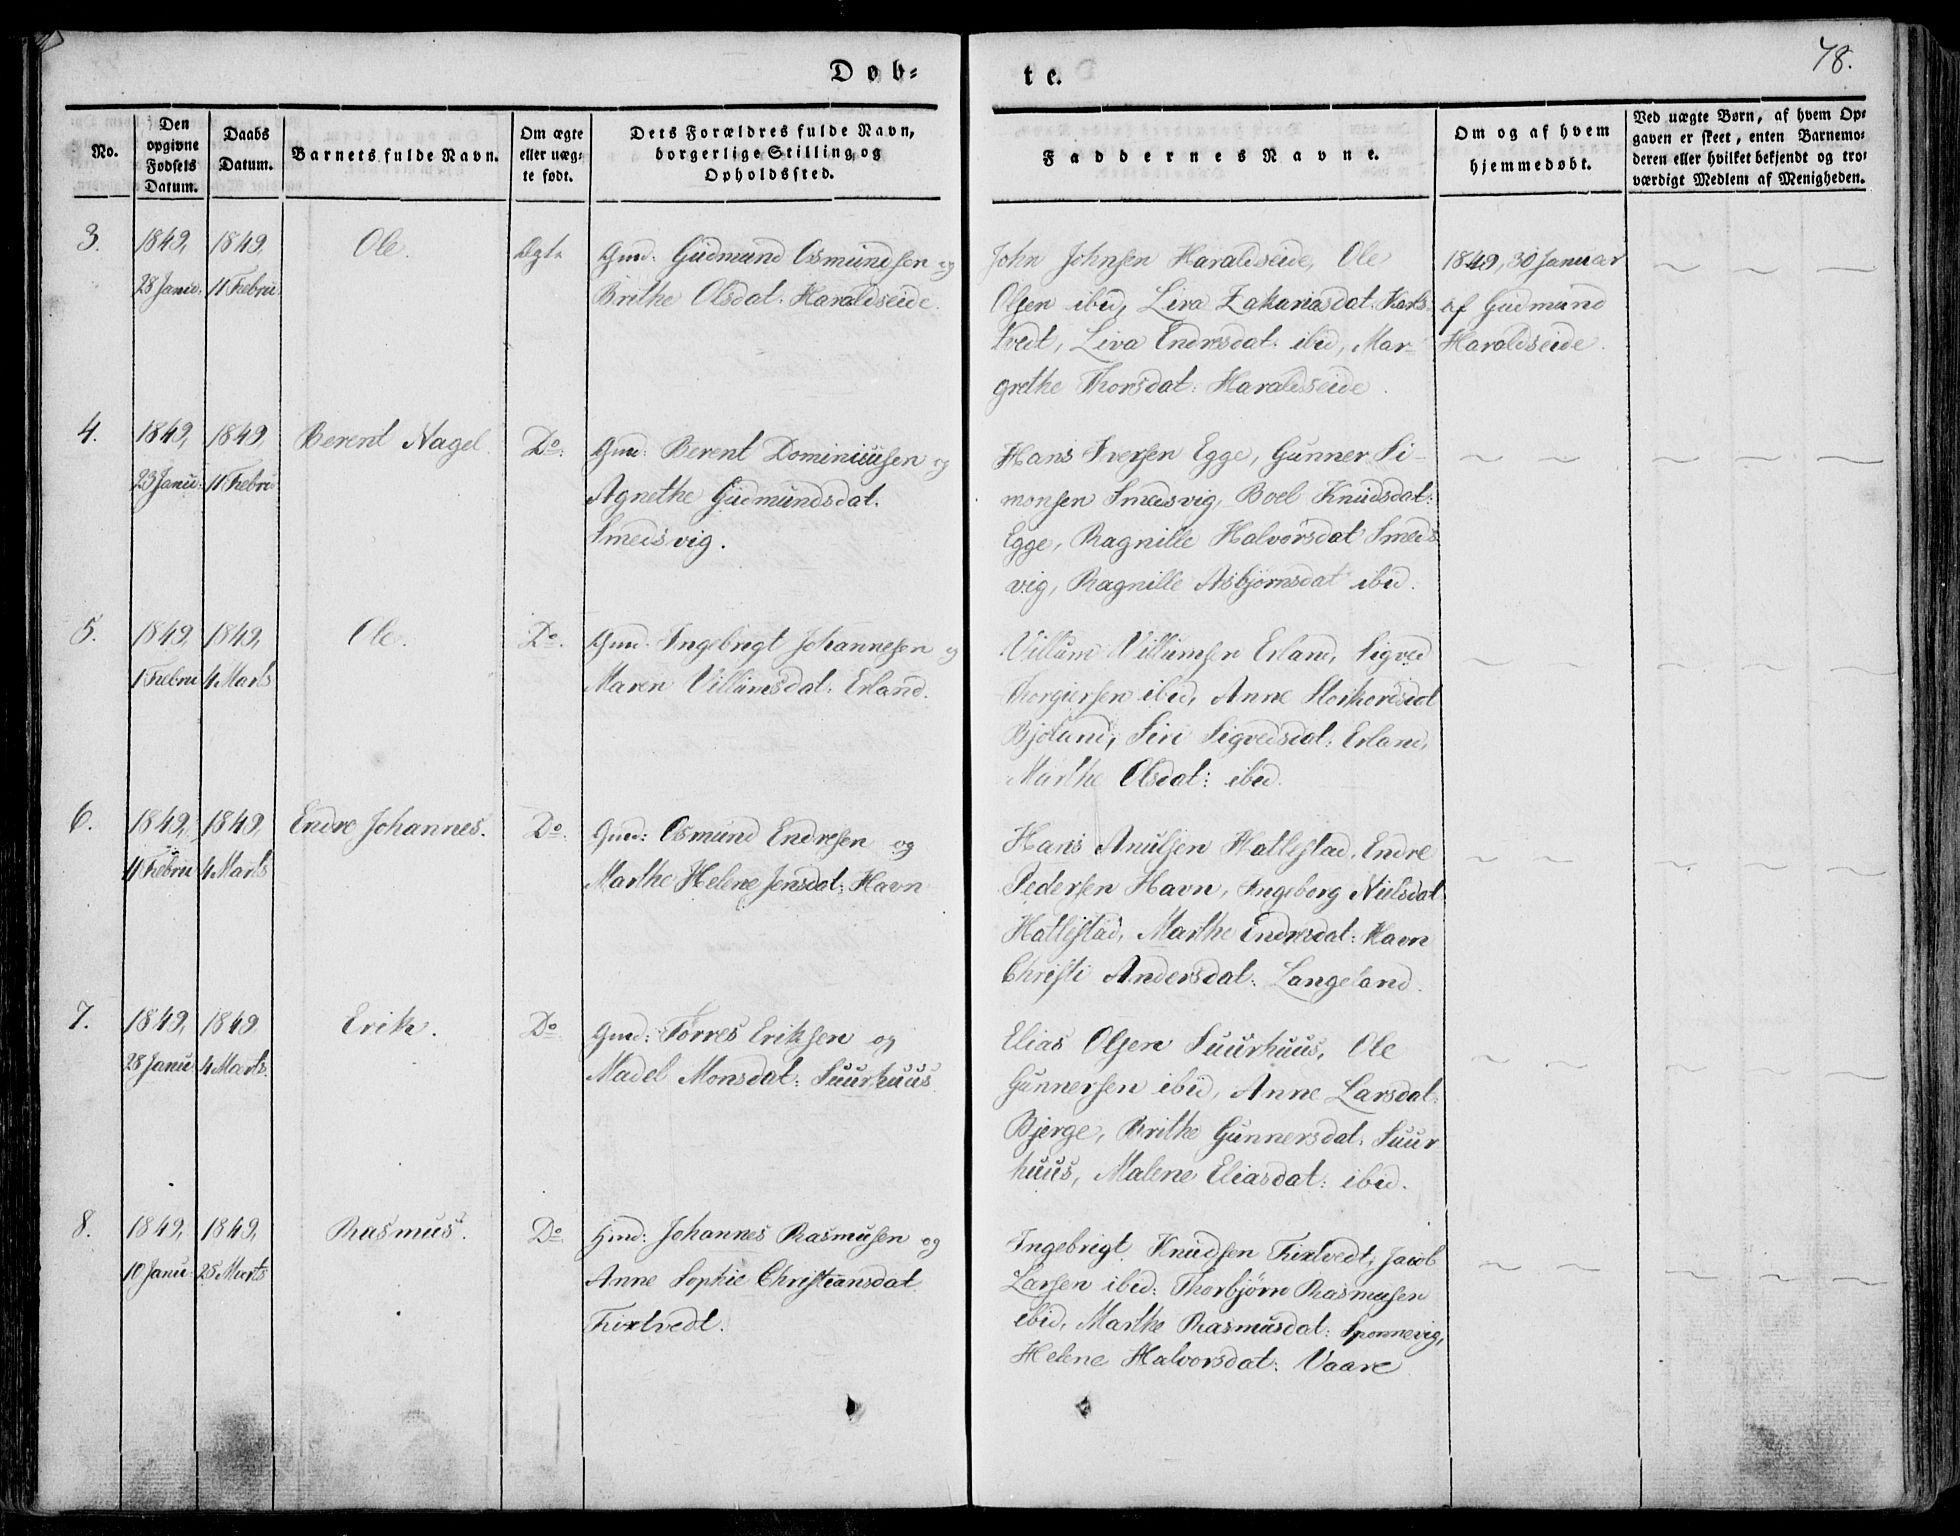 78.
Døb-
te.
No.
Den
opgivne
Fødsels
Datum.
Daabs
Datum.
Barnets fulde Navn.
Om ægte
eller uæg-
te født.
Dets Forældres fulde Navn,
borgerlige Stilling og
Opholdssted.
Faddernes Navne.
Om og af hvem
hjemmedøbt.
Ved uægte Børn, af hvem Op-
gaven er skeet, enten Barnemo-
deren eller hvilket bekjendt og tro-
værdigt Medlem af Menigheden.
3.
1849,
28 Janu:
1849,
11 Febru:
Ole.
Ægte
Gmd: Gudmund Osmundsen og
Brithe Olsdat: Haraldseide.
John Johnsen Haraldseide, Ole
Olsen ibid, Liva Zakariasdat: Kals
tvedt, Liva Endresdat: ibid, Mar-
grethe Thorsdat: Haraldseide.
1849, 30 Januar
af Gudmund
Haraldseide.
4.
1849,
23 Janu:
1849,
11 Febru:
Berent Nagel.
Do.
Gmd: Berent Dominicusen og
Agnethe Gudmundsdat.
Smedsvig.
Hans Iversen Egge, Gunner Si-
monsen Smedsvig, Boel Knudsdat:
Egge, Ragnille Halvorsdat Smeds
vig, Ragnille Asbjørnsdat ibid.
5.
1849,
1 Febru
1849,
4 Marts
Ole.
Do.
Gmd: Ingebrigt Johannesen og
Maren Villumsdat: Erland.
Villum Villumsen Erland, Sigved
Thorgiersen ibid, Anne
Bjoland, Siri Sigvedsdat: Erland,
Marthe Olsdat: ibid.
6.
1849,
11 Febru
1849,
4 Marts
Endre Johannes.
Do.
Gmd: Osmund Endresen og
Marthe Helene Jensdat: Havn
Hans Anulsen Hallestad, Endre
Pedersen Havn, Ingeborg Nielsdat:
Hallestad, Marthe Endresdat: Havn
Christi Andersdat: Langeland.
7.
1849,
28 Janu
1849
4 Marts.
Erik.
Do.
Gmd: Torres Eriksen og
Madel Monsdat: Suurhuus.
Elias Olsen Suurhuus, Ole
Gunnersen ibid, Anne Larsdat:
Bjerge, Brithe Gunnersdat: Suur
huus, Malene Eliasdat: ibid.
8.
1849,
10 Janu
1849,
25 Marts
Rasmus.
Do.
Hmd: Johannes Rasmusen og
Anne Sophie Christiansdat
Tixtvedt.
Ingebrigt Knudsen Tixtvedt, Jacob
Larsen ibid: Thorbjørn Rasmusen
ibid, Marthe Rasmusdat: Sponnevig,
Helene Halvorsdat: Vaare